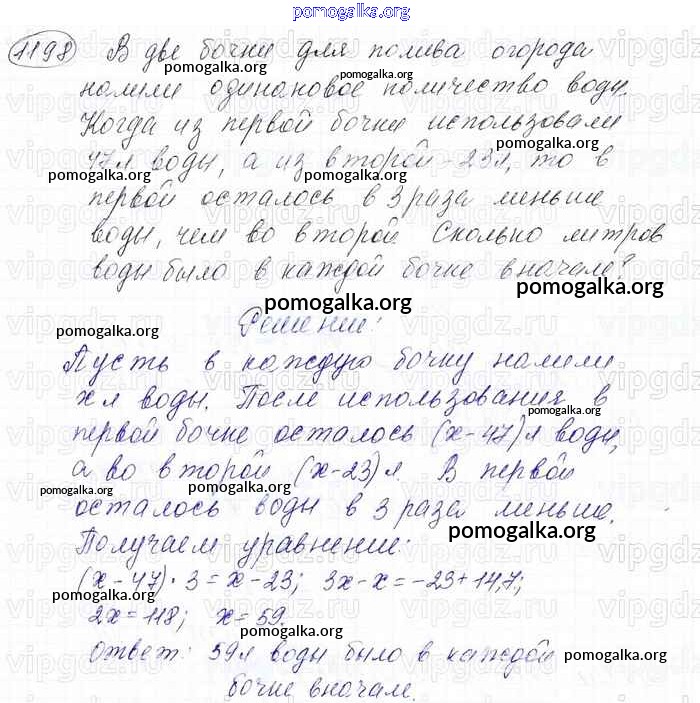 pomogalka.org
1198 В две бочки для полива огорода
pomogalka.org pomogalka.org
налили одинаковое количество воды.
pomogalka.org
Когда из первой бочки использовали
47 л воды, а из второй - 23 л, то в
pomogalka.org pomogalka.org pomogalka.org
первой осталось в 3 раза меньше
воды, чем во второй. Сколько литров
pomogalka.org
воды было в каждой бочке вначале?
pomogalka.org pomogalka.org
Решение:
pomogalka.org
Пусть в каждую бочку налили
х л воды. После использования в
pomogalka.org
первой бочке осталось (х-47) л воды,
а во второй (х-23) л. В первой
pomogalka.org pomogalka.org
осталось воды в 3 раза меньше.
pomogalka.org
Получаем уравнение:
(х-47)·3=х-23; 3х-х=-23+14,7;
pomogalka.org
2х=118; х=59.
Ответ: 59 л воды было в каждой
pomogalka.org
бочке вначале.